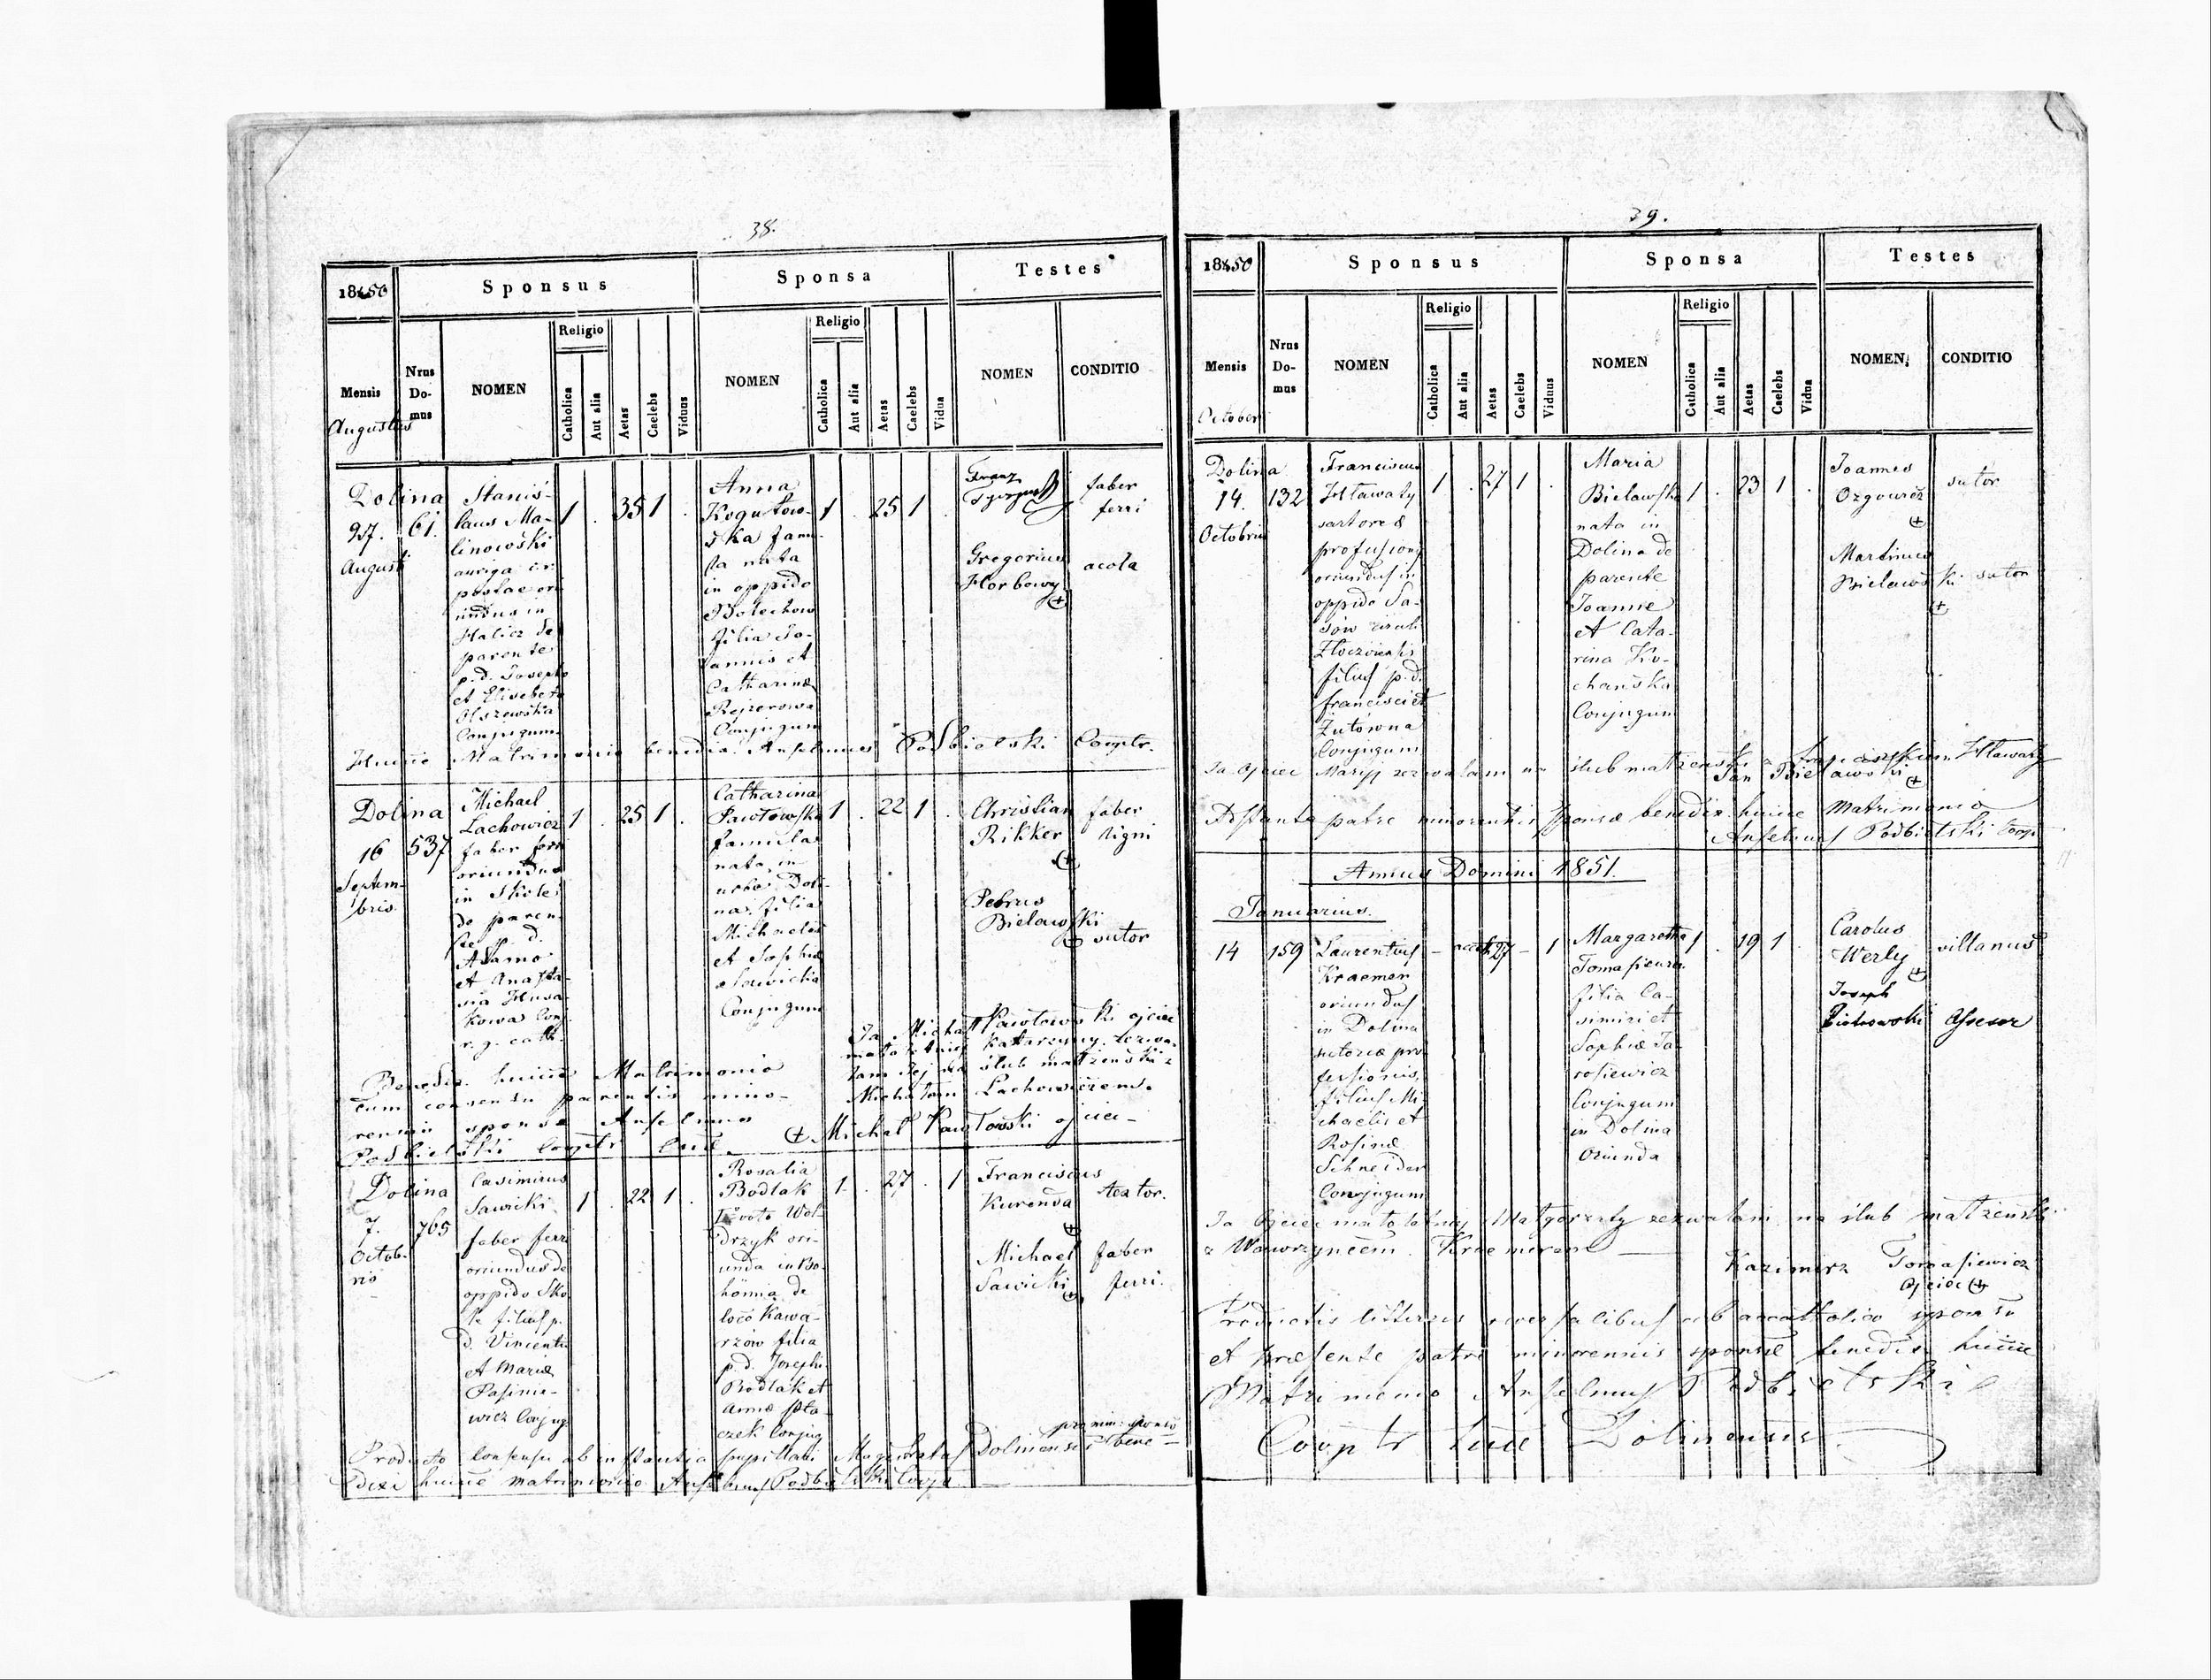 38.
1850
Sponsus
Sponsa
Testes
Mensis
Augustus
Nrus Do-mus
NOMEN
Religio
Catholica
Aut alia
Aetas
Caelebs
Viduus
NOMEN
Religio
Catholica
Aut alia
Aetas
Caelebs
Vidua
NOMEN
CONDITIO
Dolina
27.
Augusti
61.
Stanis-
laus Ma-
linowski
auriga c.r.
postae ori
undus in
Halicz de
parente
p.d. Josepho
et Elisebeta
Olszewska
Conjugum
1 . 35 1 .
Anna
Kogutow-
ska famu-
la nata
in oppido
Bolechow
filia Jo-
annis et
Catharinæ
Rejzerowa
Conjugum
1 . 25 1 .
Franz
faber
ferri
Gregorius
Horbowy
acola
Huicce Matrimonio benedixi Anselmus Podbielski Cooptr.
Dolina
16
Septem-
bris
537
Michael
Lachowicz
faber ferri
oriundus
in Skole
de paren-
te p. d.
Adamo
et Anasta-
sia Husa-
kowa Conj.
r. g. cath.
1 . 25 1 .
Catharina
Pawłowska
famula
nata in
urbe Doli-
na filia
Michaelis
et Sophiæ
Sawicka
Conjugum
1 . 22 1 .
Christian
Rikker
faber
ligni
Petrus
Bielawski
sutor
Ja Michał Pawłowski ojciec
małoletniej Katarzyny zezwa-
lam jej na ślub małżeński z
Michałem Lachowiczem.
Michał Pawłowski ojciec
Benedixi huicce Matrimonio
cum consensu parentis mino-
rennis sponsæ Anselmus
Podbielski Cooptr
Dolina
7.
Octob-
ris
765
Casimirus
Sawicki
faber ferri
oriundus de
oppido Sko
le filius p.
d. Vincentii
et Mariæ
Pasinie-
wicz Conjug
1 . 22 1 .
Rosalia
Bodlak
1º voto Wol
drzyk ori-
unda in Bo-
hömia de
loco Kawa-
rzów filia
p.d. Josephi
Bodlak et
Annæ Pta-
czek Conjug
1 . 27 . 1
Franciscus
Kurenda
textor.
Michael
Sawicki
faber
ferri.
Producto consensu ab instantia pupillari Magistratus Dolinensis pro min: sponso bene-
dixi huicce matrimonio Anselmus Podbielski Coop
39.
1850
Sponsus
Sponsa
Testes
Mensis
October
Nrus Do-mus
NOMEN
Religio
Catholica
Aut alia
Aetas
Caelebs
Viduus
NOMEN
Religio
Catholica
Aut alia
Aetas
Caelebs
Vidua
NOMEN
CONDITIO
Dolina
14.
Octobris
132
Franciscus
Hławaty
sartoreæ
professionis
oriundus in
oppido Sa-
sów circuli
Złoczoviensis
filius p.d.
Francisci et
Zutówna
Conjugum
1 . 27 1 .
Maria
Bielawska
nata in
Dolina de
parente
Joannie
et Cata-
rina Ko-
chańska
Conjugum
1 . 23 1 .
Joannes
Ozgowicz
sutor
Martinus
Bielawski
sutor
Ja ojciec Maryj zezwalam na ślub małżeński z Franciszkiem Hławaty
Jan Bielawski
Astante patre minorennis sponsæ benedixi huicce Matrimonio
Anselmus Podbielski Coop
Annus Domini 1851.
Januarius.
14
159
Laurentius
Kraemer
oriundus
in Dolina
sutoriæ pro-
fessionis,
filius Mi
chaelis et
Rosinæ
Schneider
Conjugum
- acath 27 - 1
Margaretha
Tomasiewicz
filia Ca-
simiri et
Sophiæ Ja-
rosiewicz
Conjugum
in Dolina
oriunda
1 . 19 1 .
Carolus
Werly
villanus
Joseph
Piotrowski
Assesor
Ja Ojciec małoletniej Małgorzaty zezwalam na ślub małżeński
z Wawrzyńcem Kraemerem
Kazimirz Tomasiewicz
Ojciec
Productis litteris reversalibus ab acatholico sponso
et præsente patre minorennis sponsæ benedixi huicce
Matrimonio Anselmus Podbielski
Cooptr Dolinensis